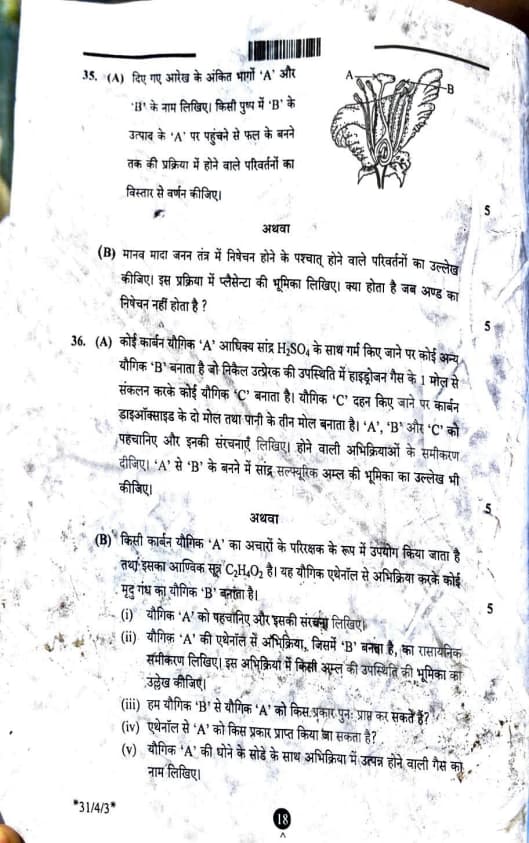 35. (A) दिए गए आरेख के अंकित भागों 'A' और
'B' के नाम लिखिए। किसी पुष्प में 'B' के
उत्पाद के 'A' पर पहुंचने से फल के बनने
तक की प्रक्रिया में होने वाले परिवर्तनों का
विस्तार से वर्णन कीजिए।
A
B
5
अथवा
(B) मानव मादा जनन तंत्र में निषेचन होने के पश्चात् होने वाले परिवर्तनों का उल्लेख
कीजिए। इस प्रक्रिया में प्लैसेन्टा की भूमिका लिखिए। क्या होता है जब अण्ड का
निषेचन नहीं होता है ?
5
36. (A) कोई कार्बन यौगिक 'A' आधिक्य सांद्र H₂SO₄ के साथ गर्म किए जाने पर कोई अन्य
यौगिक 'B' बनाता है जो निकैल उत्प्रेरक की उपस्थिति में हाइड्रोजन गैस के 1 मोल से
संकलन करके कोई यौगिक 'C' बनाता है। यौगिक 'C' दहन किए जाने पर कार्बन
डाइऑक्साइड के दो मोल तथा पानी के तीन मोल बनाता है। 'A', 'B' और 'C' को
पहचानिए और इनकी संरचनाएँ लिखिए। होने वाली अभिक्रियाओं के समीकरण
दीजिए। 'A' से 'B' के बनने में सांद्र सल्फ्यूरिक अम्ल की भूमिका का उल्लेख भी
कीजिए।
5
अथवा
(B) किसी कार्बन यौगिक 'A' का अचारों के परिरक्षक के रूप में उपयोग किया जाता है
तथा इसका आण्विक सूत्र C₂H₄O₂ है। यह यौगिक एथेनॉल से अभिक्रिया करके कोई
मृदु गंध का यौगिक 'B' बनाता है।
5
(i) यौगिक 'A' को पहचानिए और इसकी संरचना लिखिए।
(ii) यौगिक 'A' की एथेनॉल से अभिक्रिया, जिसमें 'B' बनता है, का रासायनिक
समीकरण लिखिए। इस अभिक्रिया में किसी अम्ल की उपस्थिति की भूमिका का
उल्लेख कीजिए।
(iii) हम यौगिक 'B' से यौगिक 'A' को किस प्रकार पुनः प्राप्त कर सकते हैं?
(iv) एथेनॉल से 'A' को किस प्रकार प्राप्त किया जा सकता है?
(v) यौगिक 'A' की धोने के सोडे के साथ अभिक्रिया में उत्पन्न होने वाली गैस का
नाम लिखिए।
*31/4/3*
18